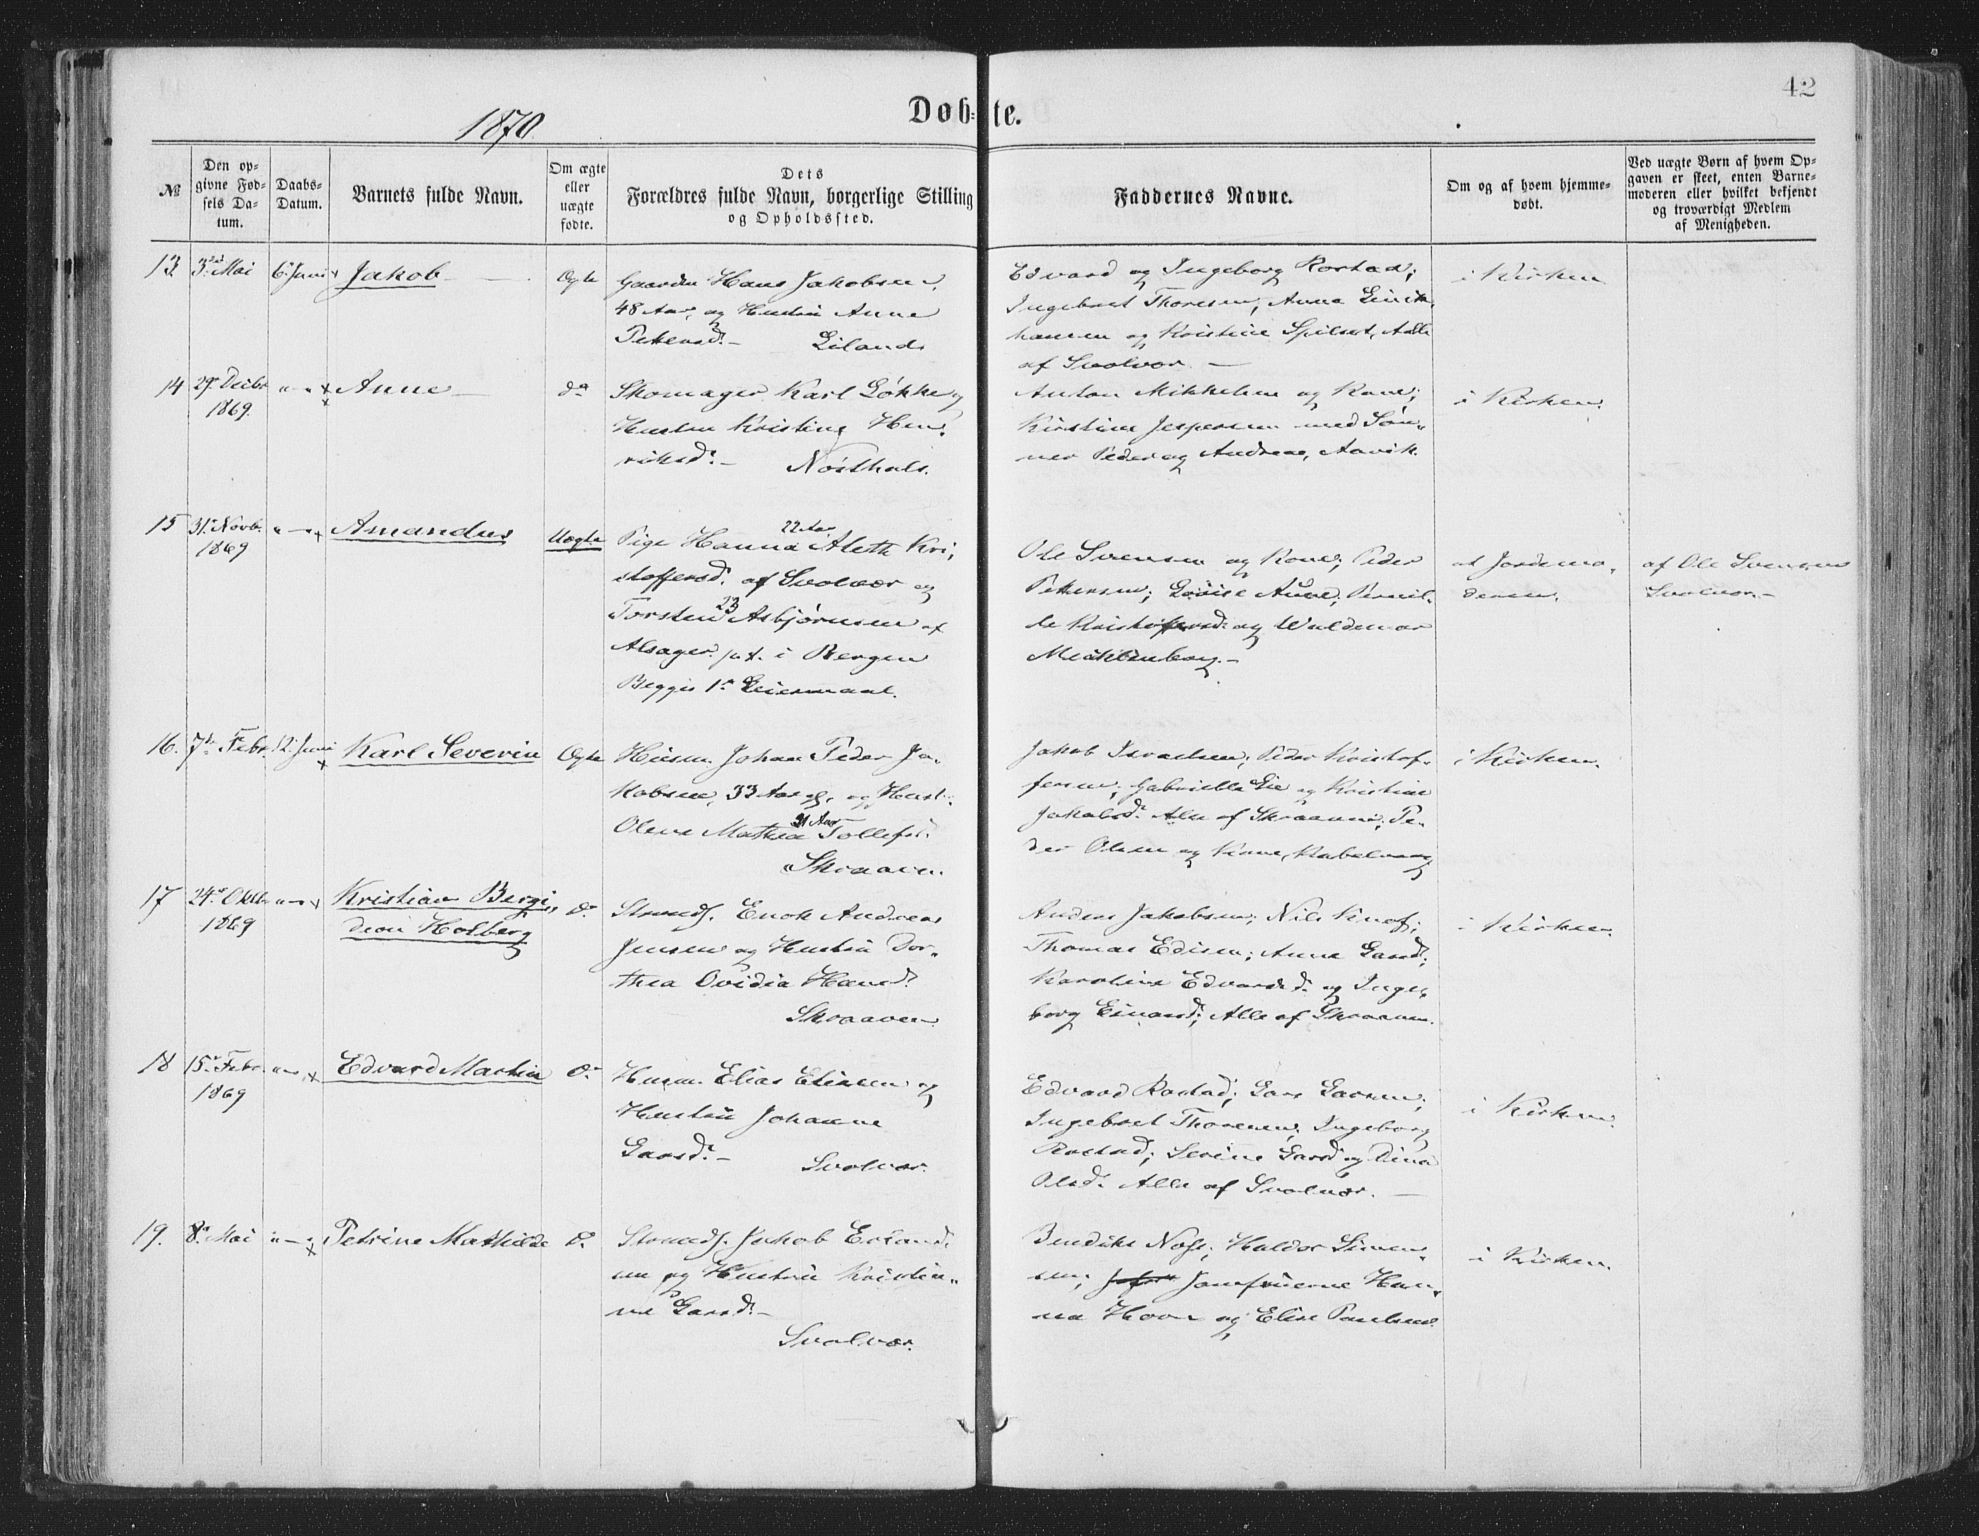 42
1870.
Døb-te.
№
Den op-
givne Fød-
sels Da-
tum.
Daabs-
Datum.
Barnets fulde Navn.
Om ægte
eller
uægte
fødte.
Dets
Forældres fulde Navn, borgerlige Stilling
og Opholdssted.
Faddernes Navne.
Om og af hvem hjemme-
døbt.
Ved uægte Børn af hvem Op-
gaven er skeet, enten Barne-
moderen eller hvilket bekjendt
og troværdigt Medlem
af Menigheden.
13
3 Mai
6 Juni
Jakob
Ægte
Gaardm Hans Jakobsen,
48 Aar, og Hustru Anne
Petersd. Lilands
Edvard og Ingeborg Rostad;
Ingebret Thoresen, Anna
og Kristine Alle
af Svolvær.
i Kirken
14
29 Decbr
1869.
Anne
do
Skomager Karl Løkke og
Hustru Kristine Hen-
riksd.
Anton Mikkelsen og Kone;
Kirstine Jespersen med Søn-
ner Peder og Andreas, Aavik.
i Kirken.
15
31 Novb.
1869
Amandus
Uægte
22 Aar
Pige Hanna Aleth Kri,
stoffersd. af Svolvær og
23
Torsten Asbjørnsen af
Alsager p.t. i Bergen
Begges 1ste Leiermaal.
Ole Svensen og Kone; Peder
Petersen; Louise Aune, Pernil-
le Kristoffersd. og Waldemar
Mecklenborg.
at Jordemo-
deren.
af Ole Svensen
Svolvær.
16.
7 Febr.
12 Juni
Karl Severin
Ægte
Husm. Johan Peder Ja-
kobsen, 33 Aar gl, og Hust.
31 Aar
Olene Mathea Tollefsd.
Skraaven.
Jakob Israelsen, Peder Kristof-
fersen; Gabriella Lie og Kristine
Jakobsd. Alle af Skraaven; Pe-
der Olsen og Kone, Kabelvaag
i Kirken.
17
24 Oktbr
1869
Kristian Bergi,
Holberg
do
Strands. Enok Andreas
Jensen og Hustru Dor-
thea Ovidia Hansd.
Skraaven
Anders Jakobsen; Nils
Thomas Edisen; Anna Larsd;
Karoline Edvardsd. og Inge,
borg Einarsd; Alle af Skraaven.
i Kirken.
18
15 Febr.
1869
Edvard Martin
do
Husm. Elias Eliasen og
Hustru Johanne
Larsd. Svolvær.
Edvard Rostad; Lars Larsen;
Ingebret Thoresen, Ingeborg
Rostad; Serine Larsd og Dina
Olsd. Alle af Svolvær.
i Kirken.
19.
8 Mai
Petrine Mathilde
do
Strands. Jakob Erland,
sen og Hustru Kristin-
ne Larsd.
Svolvær.
Bendiks Halder Simon-
sen, Jomfruerne Han-
na Hovn og Elise Paulsen.
i Kirken.